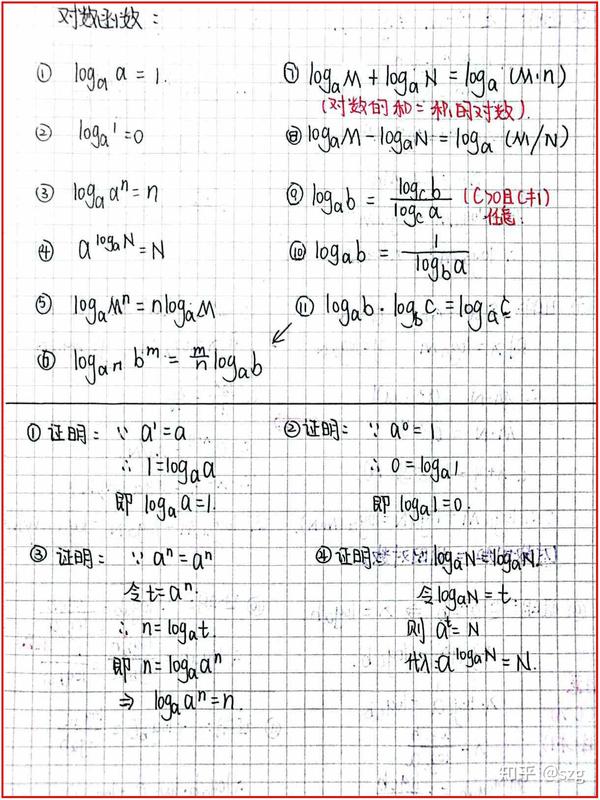 对数函数：
① logₐa = 1.
② logₐ1 = 0
③ logₐaⁿ = n
④ a^(logₐN) = N
⑤ logₐMⁿ = nlogₐM
⑥ log_(aⁿ) bᵐ = m/n logₐb
⑦ logₐM + logₐN = logₐ (M·n)
(对数的和 = 积的对数).
⑧ logₐM - logₐN = logₐ (M/N)
⑨ logₐb = log_c b / log_c a (C>0且C≠1)
任意
⑩ logₐb = 1 / log_b a
⑪ logₐb · log_b C = logₐC
① 证明： ∵ a¹ = a
∴ 1 = logₐa
即 logₐa = 1.
② 证明： ∵ a⁰ = 1
∴ 0 = logₐ1
即 logₐ1 = 0.
③ 证明： ∵ aⁿ = aⁿ
令 t = aⁿ.
∴ n = logₐt.
即 n = logₐaⁿ
⇒ logₐaⁿ = n.
④ 证明： ∵ logₐN = logₐN.
令 logₐN = t.
则 aᵗ = N
代入: a^(logₐN) = N.
知乎 @szg